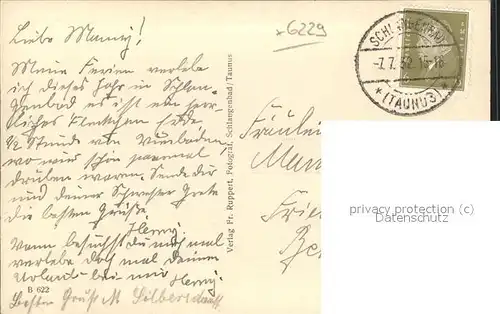 Liebe Manny!
Meine Ferien verlebe
ich dieses Jahr in Schlan-
genbad es ist ein herr-
liches Fleckchen Erde
½ Stunde von Wiesbaden,
wo wir schon paarmal
drüben waren. Sende dir
und deiner Schwester Grete
die besten Grüße
Henny.
Wann besuchst du uns mal
verlebe doch mal deinen
Urlaub bei mir Henny.
Besten Gruß M Silbers
B 622
Verlag Fr. Ruppert, Fotograf, Schlangenbad/Taunus
*6229
SCHLANGENBAD
-7.7.32.15-16
* (TAUNUS)
Fräulein
privacy protection (c)
Datenschutz